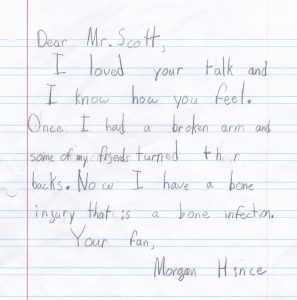 Dear Mr. Scott,
I loved your talk and
I know how you feel.
Once I had a broken arm and
some of my friends turned thr
backs. Now I have a bone
injury that is a bone infection.
Your fan,
Morgan Hince